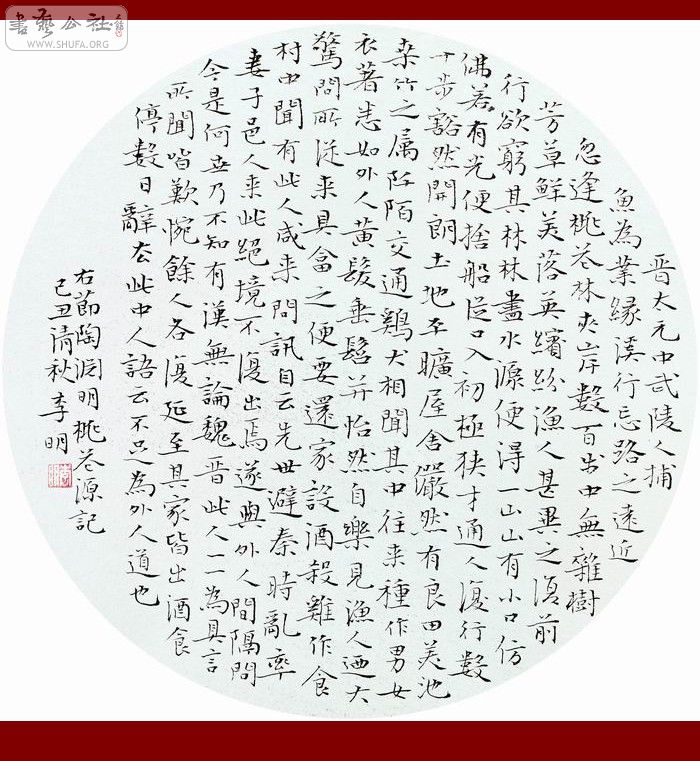 書藝公社
WWW.SHUFA.ORG
晋太元中武陵人捕
魚為業緣溪行忘路之遠近
忽逢桃花林夾岸數百步中無雜樹
芳草鮮美落英繽紛漁人甚異之復前
行欲窮其林林盡水源便得一山山有小口仿
佛若有光便捨船從口入初極狹才通人復行數
十步豁然開朗土地平曠屋舍儼然有良田美池
桑竹之属阡陌交通鷄犬相聞其中往来種作男女
衣著悉如外人黄髮垂髫并怡然自樂見漁人迺大
驚問所從来具畣之便要還家設酒殺雞作食
村中聞有此人咸来問訊自云先世避秦時亂率
妻子邑人来此絕境不復出焉遂與外人間隔問
今是何世乃不知有漢無論魏晋此人一一為具言
所聞皆歎惋餘人各復延至其家皆出酒食
停數日辭去此中人語云不足為外人道也
右節陶渊明桃花源記
己丑清秋李明